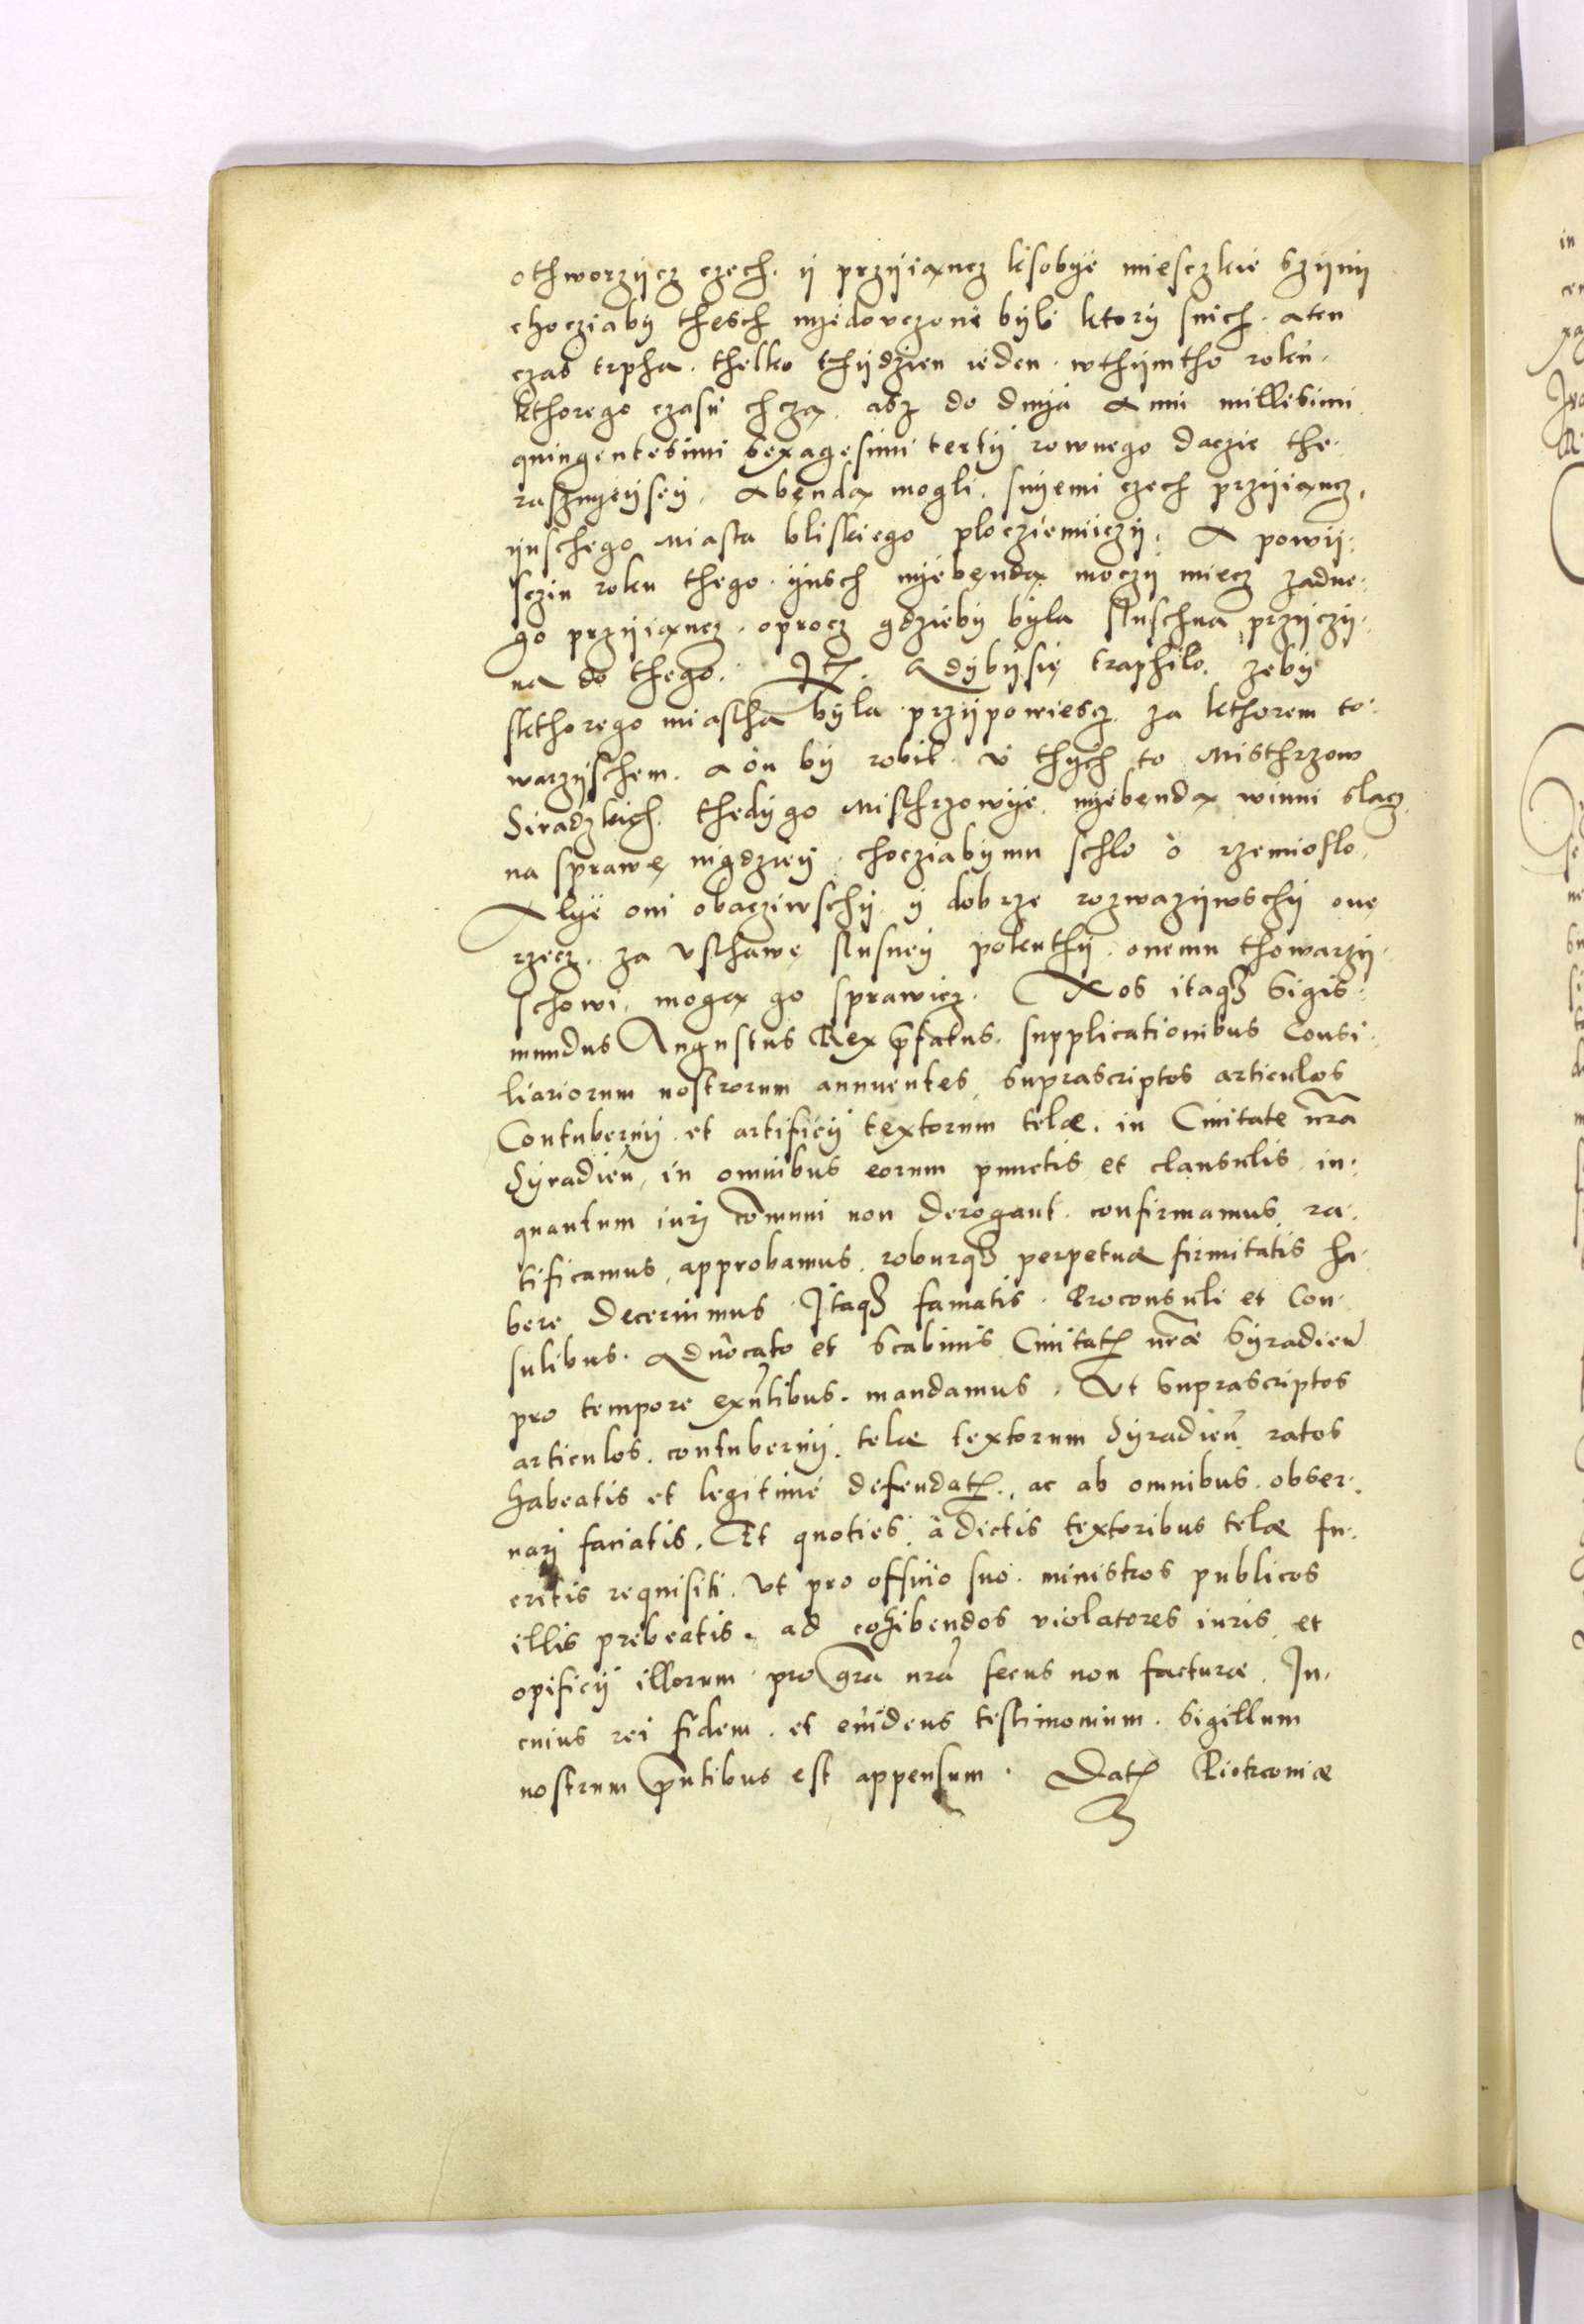 othworzycz czech. y przyiancz ksobye miesczkie Szyny
chocziaby thesch nyedouczone byli ktory snich. aten
czas trpha. thelko thydzien ieden. wthymtho roku.
kthorego czasu chczą, asz do dnyá Anni millesimi
quingentesimi sexagesimi tertij rownego daczie the-
rasznyeysey. A bendą mogli. snyemi czech przyiancz,
ynschego Miasta bliskiego ploczienniczy. A powy-
sczin roku thego. ynsch nyebendą moczy miecz zadne-
go przyiancz. oprocz gdzieby byla sluschna przyczy-
na do thego. 17. Gdybysię traphilo. zeby
skthorego miastha byla przypowiescz. za kthorem to-
warzyschem. A on by robil. v thych to Misthrzow
Siradzkich. thedygo Misthrzowye. nyebendą winni slacz.
na sprawę nigdziey. chocziabymu schlo o rzemioslo.
Alye oni obacziwschy. y dobrze rozwazywschy onę
rzecz. za vsthawę slusney pokuthy. onemu thowarzy-
schowi. mogą go sprawicz. Nos itaq3 Sigis-
mundus Augustus Rex pfatus. supplicationibus Consi-
liariorum nostrorum annuentes, suprascriptos articulos
Contubernij. et artificij textorum telæ. in Ciuitate nrã
Syradień. in omnibus eorum punctis et clausulis. in-
quantum iurj comuni non derogant. confirmamus. ra-
tificamus, approbamus. roburq3 perpetuæ firmitatis ha-
bere decernimus. Itaq3 famatis. Proconsuli et Con-
sulibus. Aduocato et Scabinis Ciuitatis nræ Syradień
pro tempore exntibus. mandamus. Vt suprascriptos
articulos. contubernij. telæ textorum Syradień. ratos
habeatis et legitime defendatis. ac ab omnibus. obser-
uarj faciatis. Et quoties à dictis textoribus telæ fu-
eritis requisiti. Vt pro officio suo. ministros publicos
illis prebeatis. ad cohibendos violatores iuris, et
opificij illorum. pro gra nrã secus non facturæ. In-
cuius rei fidem. et euidens testimonium. Sigillum
nostrum pntibus est appensum. Datt Piotrcouiæ